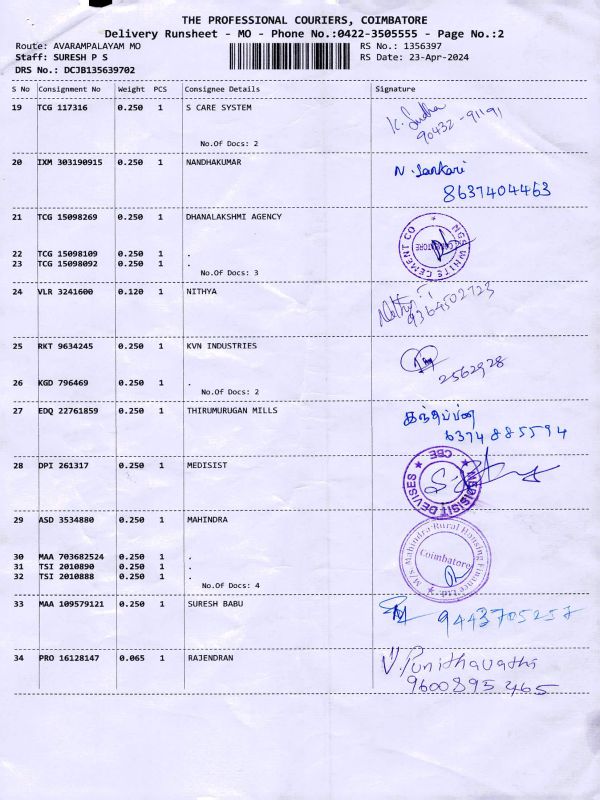 THE PROFESSIONAL COURIERS, COIMBATORE
Delivery Runsheet - MO - Phone No.:0422-3505555 - Page No.:2
Route: AVARAMPALAYAM MO RS No.: 1356397
Staff: SURESH P S RS Date: 23-Apr-2024
DRS No.: DCJB135639702
S No Consignment No Weight PCS Consignee Details Signature
19 TCG 117316 0.250 1 S CARE SYSTEM K. Sudha
90432-91191
No.Of Docs: 2
20 IXM 303190915 0.250 1 NANDHAKUMAR N. Sankari
8637404463
21 TCG 15098269 0.250 1 DHANALAKSHMI AGENCY
WHITE CEMENT CO
COIMBATORE
22 TCG 15098109 0.250 1 .
23 TCG 15098092 0.250 1 .
No.Of Docs: 3
24 VLR 3241600 0.120 1 NITHYA Nithya
9364502723
25 RKT 9634245 0.250 1 KVN INDUSTRIES
2562928
26 KGD 796469 0.250 1 .
No.Of Docs: 2
27 EDQ 22761859 0.250 1 THIRUMURUGAN MILLS
6374885594
28 DPI 261317 0.250 1 MEDISIST
MEDISIST DEVISES
CBE
29 ASD 3534880 0.250 1 MAHINDRA
M/s Mahindra Rural Housing Finance Ltd
Coimbatore
30 MAA 703682524 0.250 1 .
31 TSI 2010890 0.250 1 .
32 TSI 2010888 0.250 1 .
No.Of Docs: 4
33 MAA 109579121 0.250 1 SURESH BABU 9443705257
34 PRO 16128147 0.065 1 RAJENDRAN V. Punithavathi
9600895465